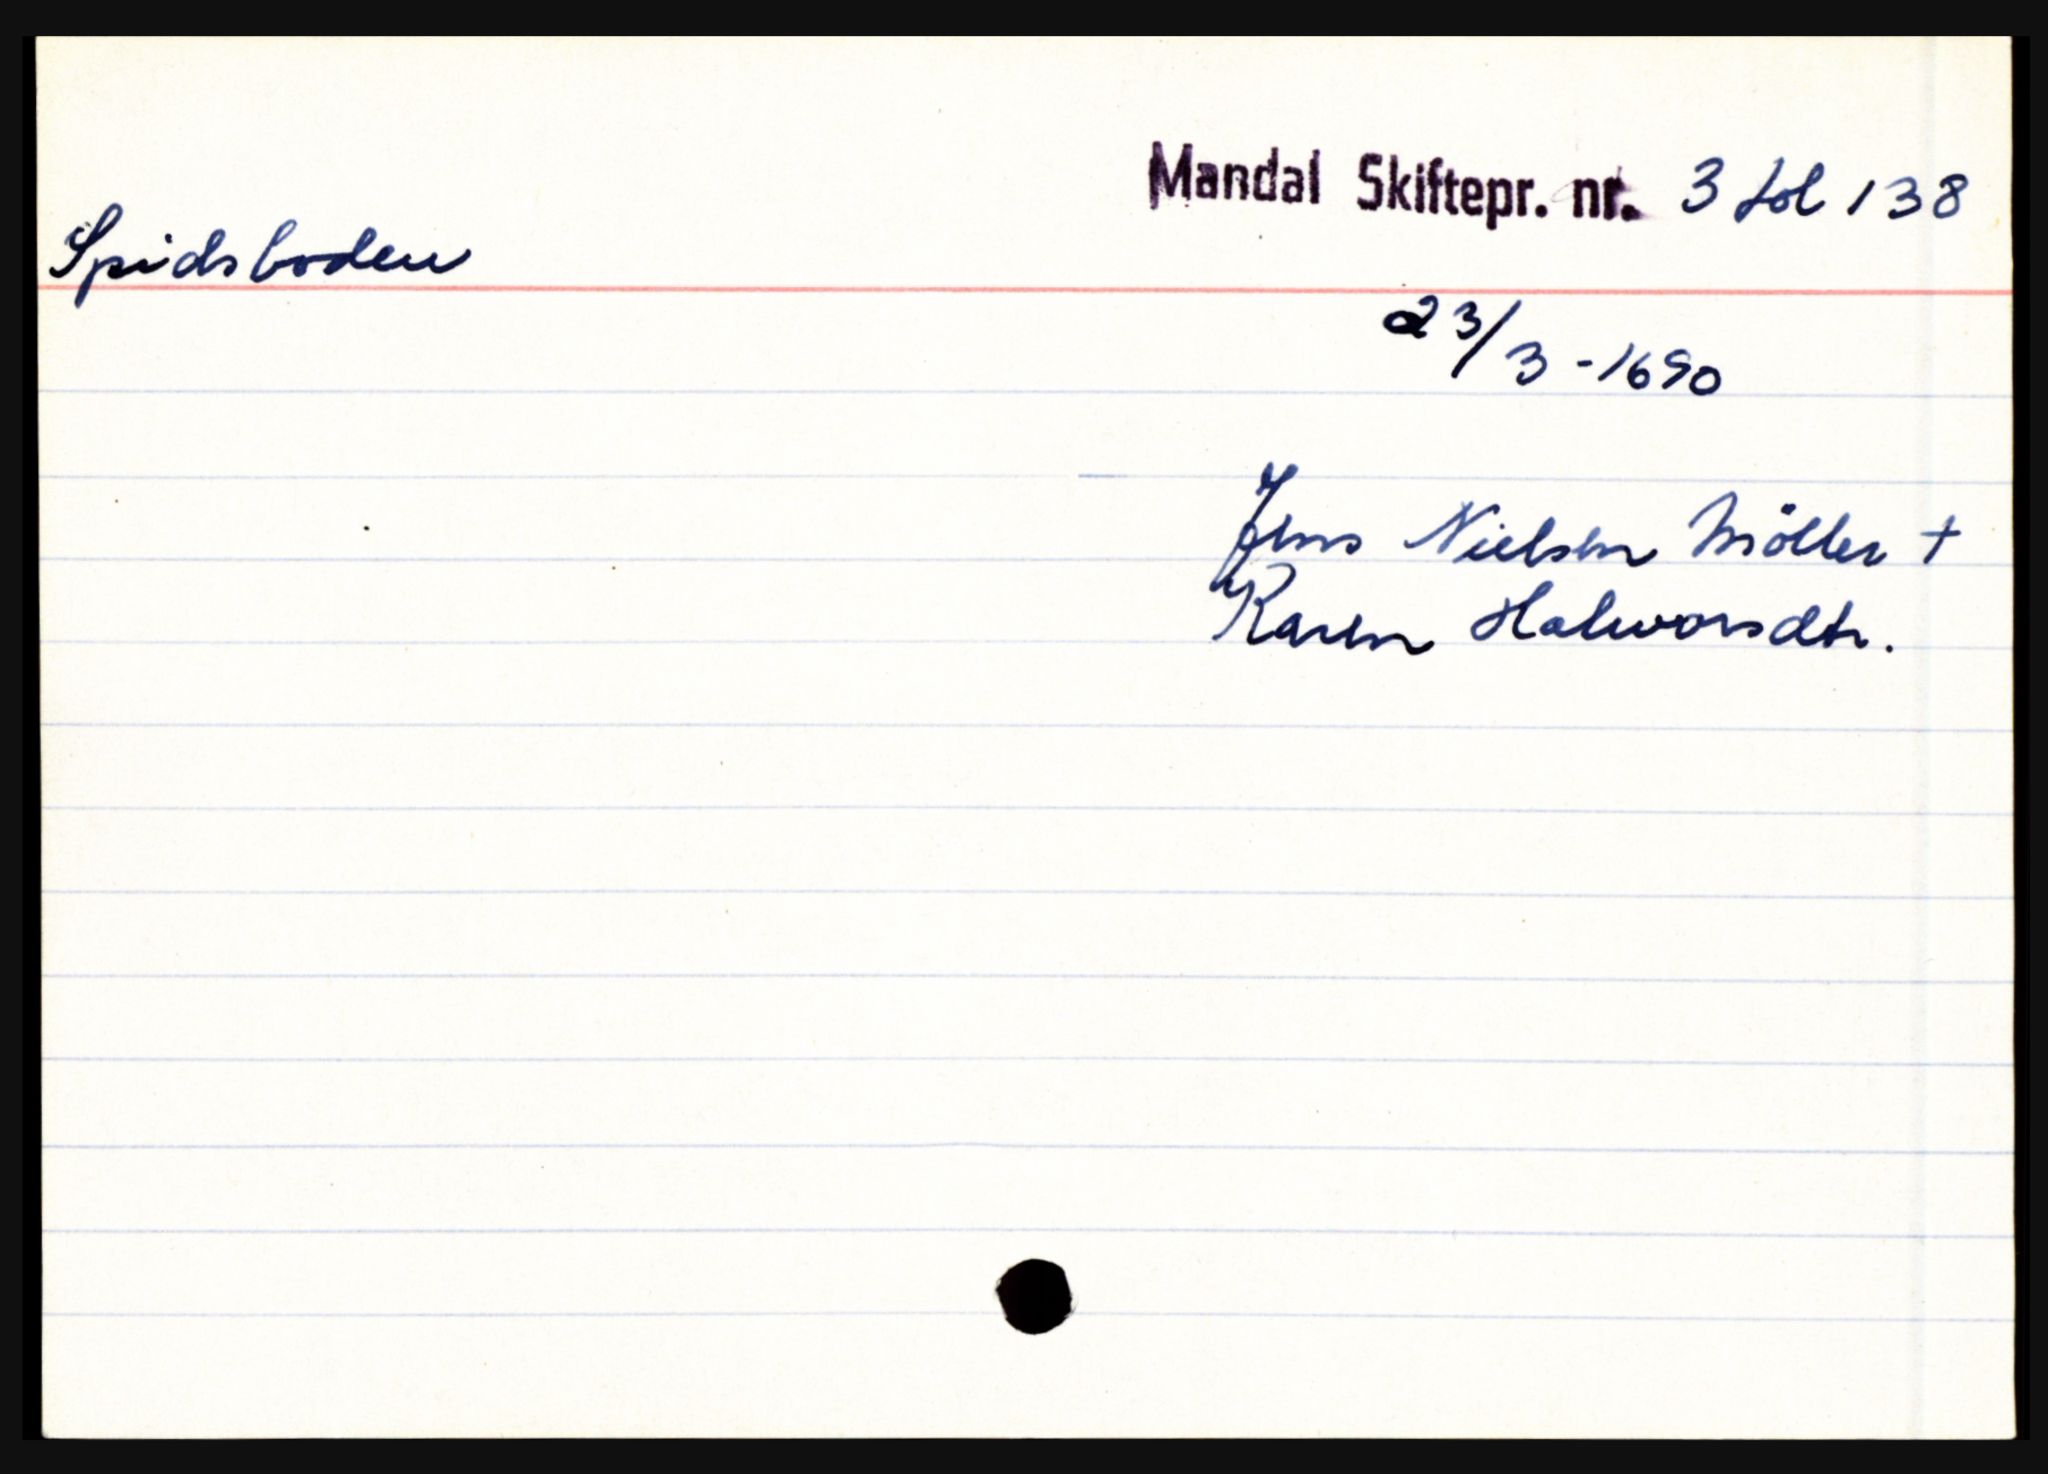 Mandal Skiftepr. nr. 3 fol 138
Spidsboden
23/3 - 1690
Jens Nielsen Möller +
Karen Halworsdtr.